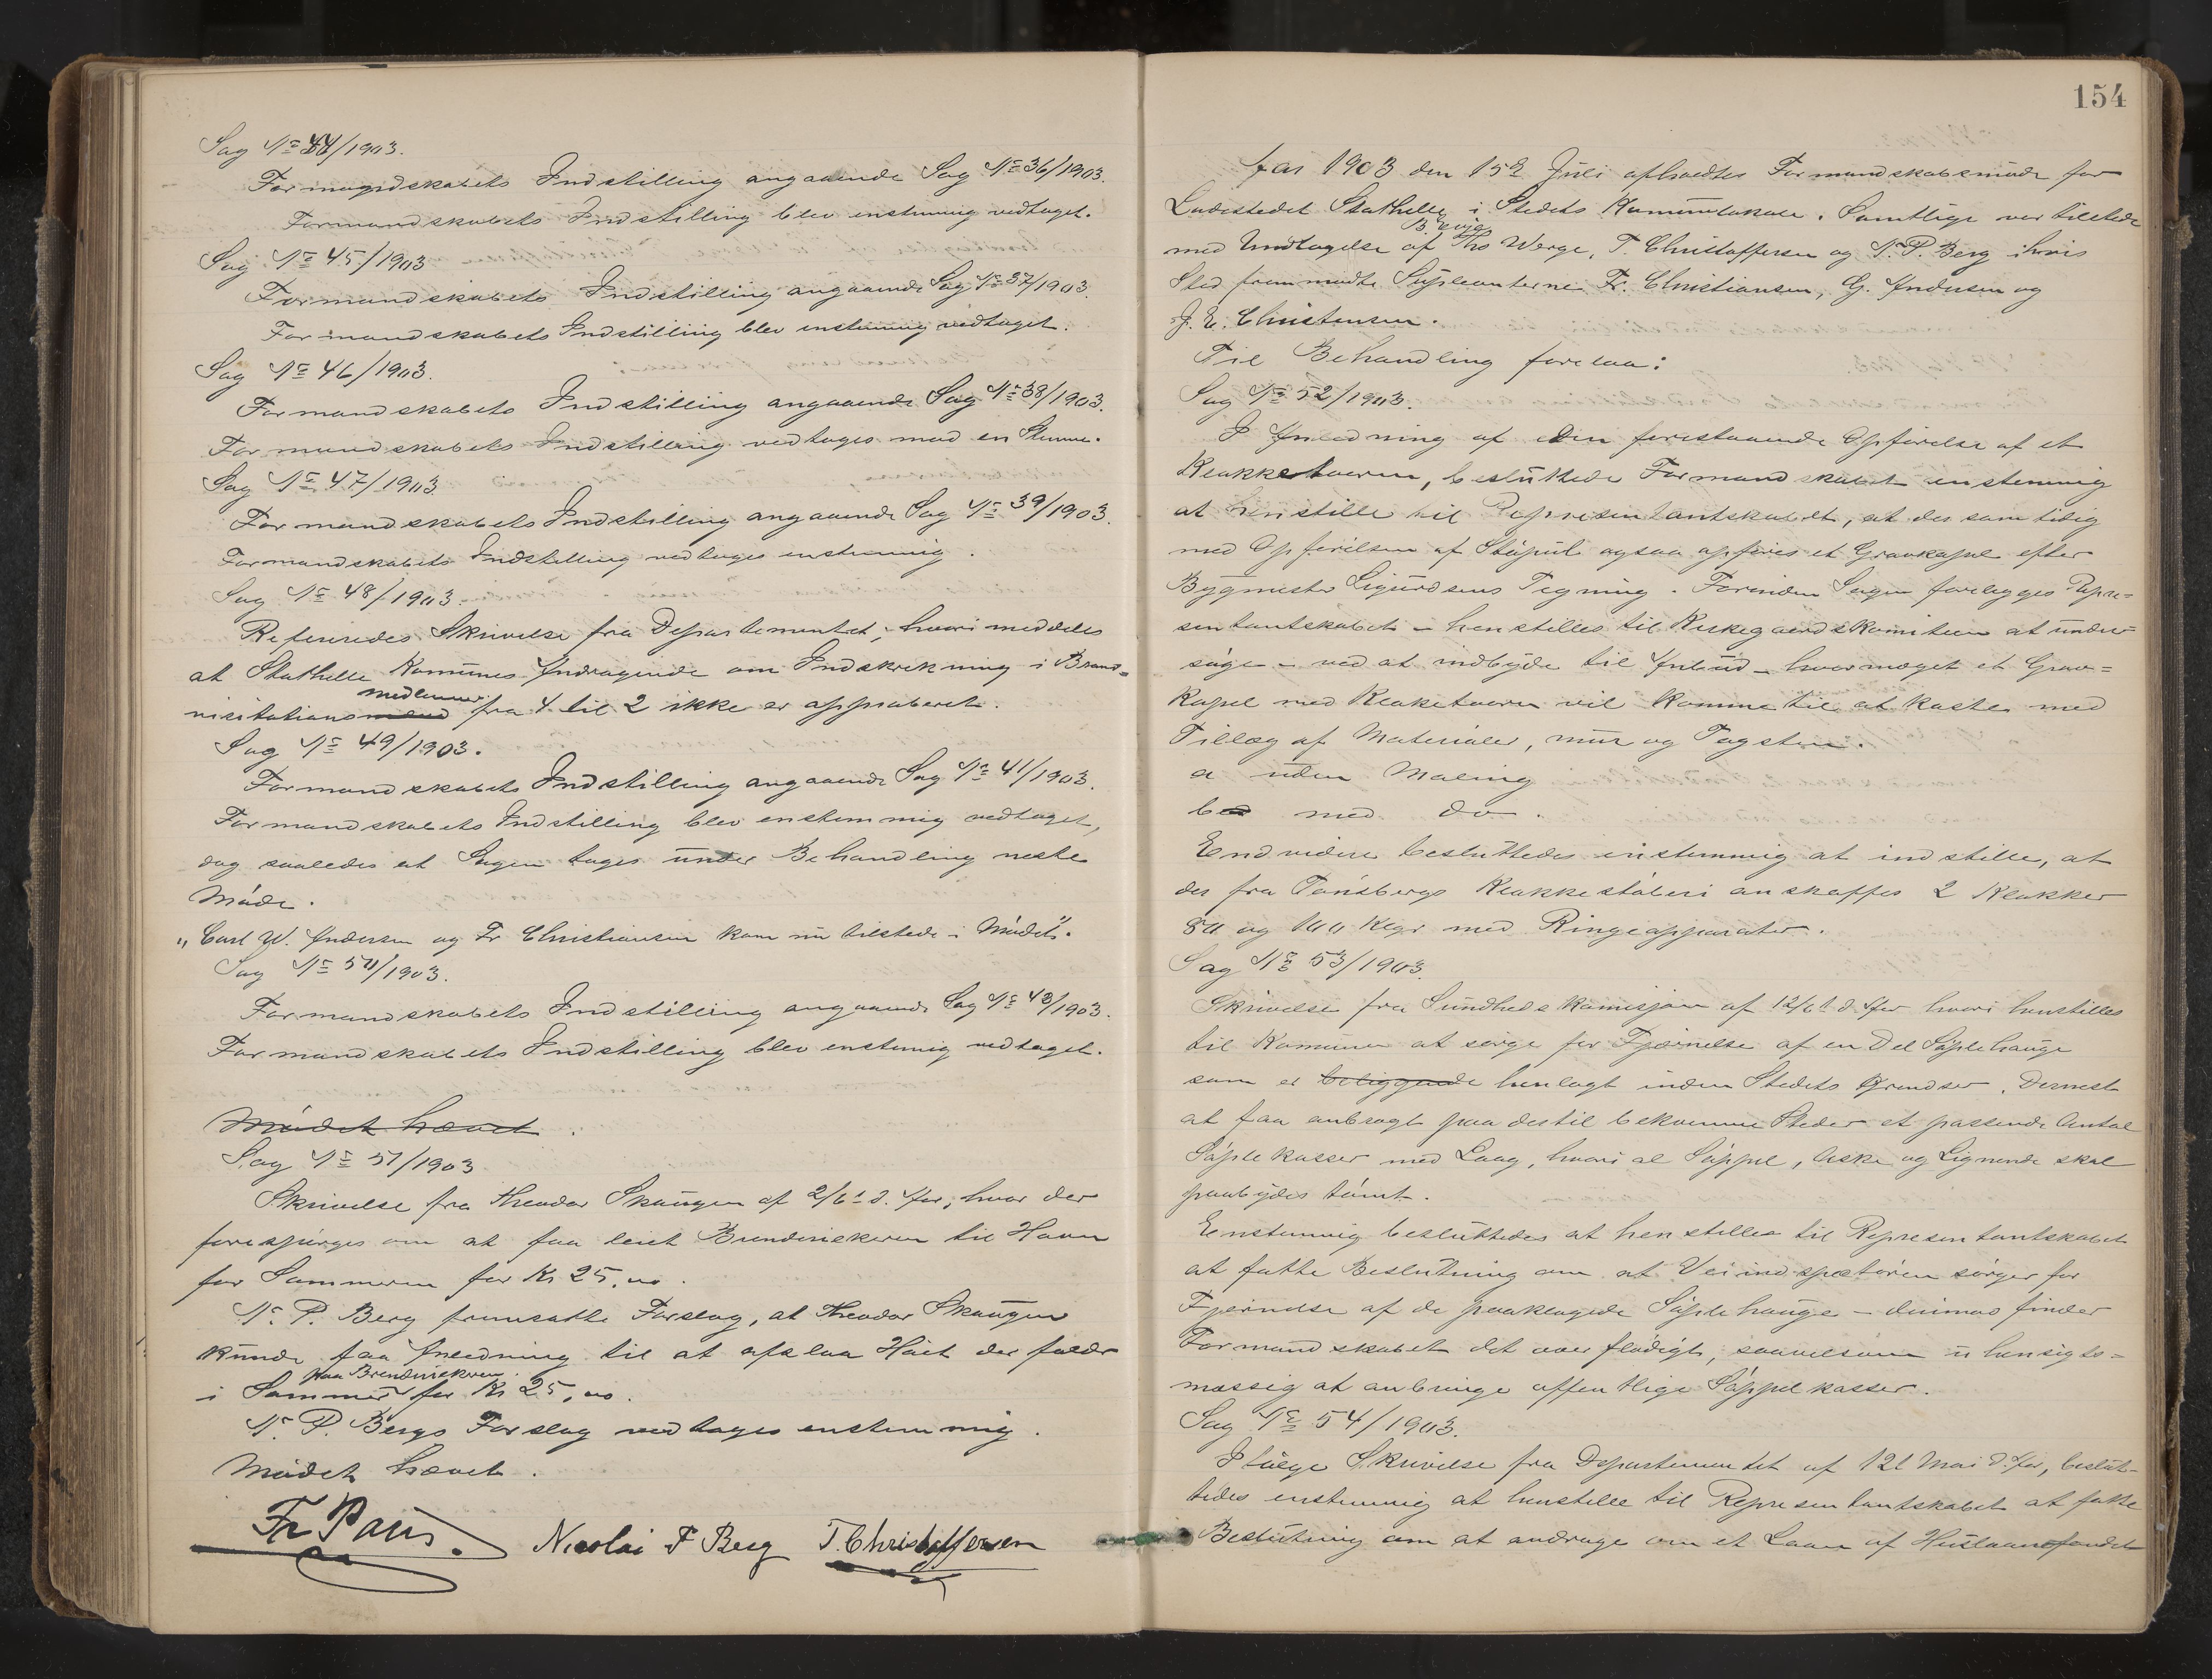 Sag No 44/1903.
Formandskabets Indstilling angaaende Sag No 36/1903.
Formandskabets Indstilling blev enstemmig vedtaget.
Sag No 45/1903
Formandskabets Indstilling angaaende Sag No 37/1903.
Formandskabets Indstilling blev enstemmig vedtaget.
Sag No 46/1903.
Formandskabets Indstilling angaaende Sag No 38/1903.
Formandskabets Indstilling vedtages med en Stemme.
Sag No 47/1903
Formandskabets Indstilling angaaende Sag No 39/1903.
Formandskabets Indstilling vedtages enstemmig.
Sag No 48/1903.
Refereredes Skrivelse fra Departementet, hvori meddeles
at Stathelle Komunes Andragende om Indskrekning i Brand=
visitationsmend medlemmer fra 4 til 2 ikke er approberet.
Sag No 49/1903.
Formandskabets Indstilling angaaende Sag No 41/1903.
Formandskabets Indstilling blev enstemmig vedtaget,
dog saaledes at Sagen tages under Behandling neste
Møde.
"Carl W. Andersen og Fr Christiansen kom nu tilstede i Mødet".
Sag No 50/1903.
Formandskabets Indstilling angaaende Sag No 43/1903.
Formandskabets Indstilling blev enstemig vedtaget.
Mødet hævet.
Sag No 51/1903
Skrivelse fra Theodor Skaugen af 2/6 d. Aar, hvor der
forespørges om at faa leiet Brendeviekeren til Havn
for Sommeren for Kr 25,00.
N. P. Berg fremsatte Forslag, at Theodor Skaugen
kunde faa Anledning til at afslaa Høiet der falder
paa Brendeviekren
i Sommer for Kr 25,00.
N. P. Bergs Forslag vedtages enstemmig.
Mødet hævet.
Fr Paus. Nicolai P Berg T. Christoffersen
154
Aar 1903 den 15de Juli afholdtes Formandskabsmøde for
Ladestedet Stathelle i Stedets Komunelokale. Samtlige var tilstede
med Undtagelse af Ths Werge, T. Christoffersen og N. P. Berg ihvis
Sted fremmødte Supleanterne Fr. Christiansen, G. Andersen og
J. E. Christensen.
Til Behandling forelaa:
Sag No 52/1903.
I Anledning af den forestaaende Opførelse af et
Klokketaarn, besluttede Formandskabet enstemmig
at henstille til Representantskabet, at der samtidig
med Opførelsen af Støpul ogsaa opføres et Gravkapel efter
Bygmester Sigurdsens Tegning. Forinden Sagen forelegges Repre=
sentantskabet – henstilles til Kirkegaardskomiteen at under=
søge – ved at indbyde til Anbud – hvormeget et Grav=
kapel med Kloketaarn vil komme til at koste med
Tillæg af Materialer, mur og Tagsten.
a uden Maling
b med do.
Endvidere besluttedes enstemmig at indstille, at
der fra Tønsbergs Klokkestøberi anskaffes 2 Klokker
80 og 100 Kgr med Ringeapparater.
Sag No 53/1903.
Skrivelse fra Sundhedskomisjon af 12/6 d. Aar hvori henstilles
til Komunen at sørge for Fjernelse af en Del Søplehauge
som er beliggende henlagt inden Stedets Grendser. Dernest
at faa anbragt paa dertil bekvemme Steder et passende Antal
Søplekasser med Laag, hvori al Søppel, Aske og Lignende skal
paabydes tømt.
Enstemmig besluttedes at henstilles til Representantskabet
at fatte Beslutning om at Veiinspektøren sørger for
Fjernelse af de paaklagede Søplehauge – derimod finder
Formandskabet det overflødigt, saavelsom uhensigts=
mæssig at anbringe offentlige Søppelkasser.
Sag No 54/1903.
Ifølge Skrivelse fra Departementet af 12t Mai d. Aar, beslut-
tedes enstemmig at henstille til Representantskabet at fatte
Beslutning om at andrage om et Laan af Huslaanefondet